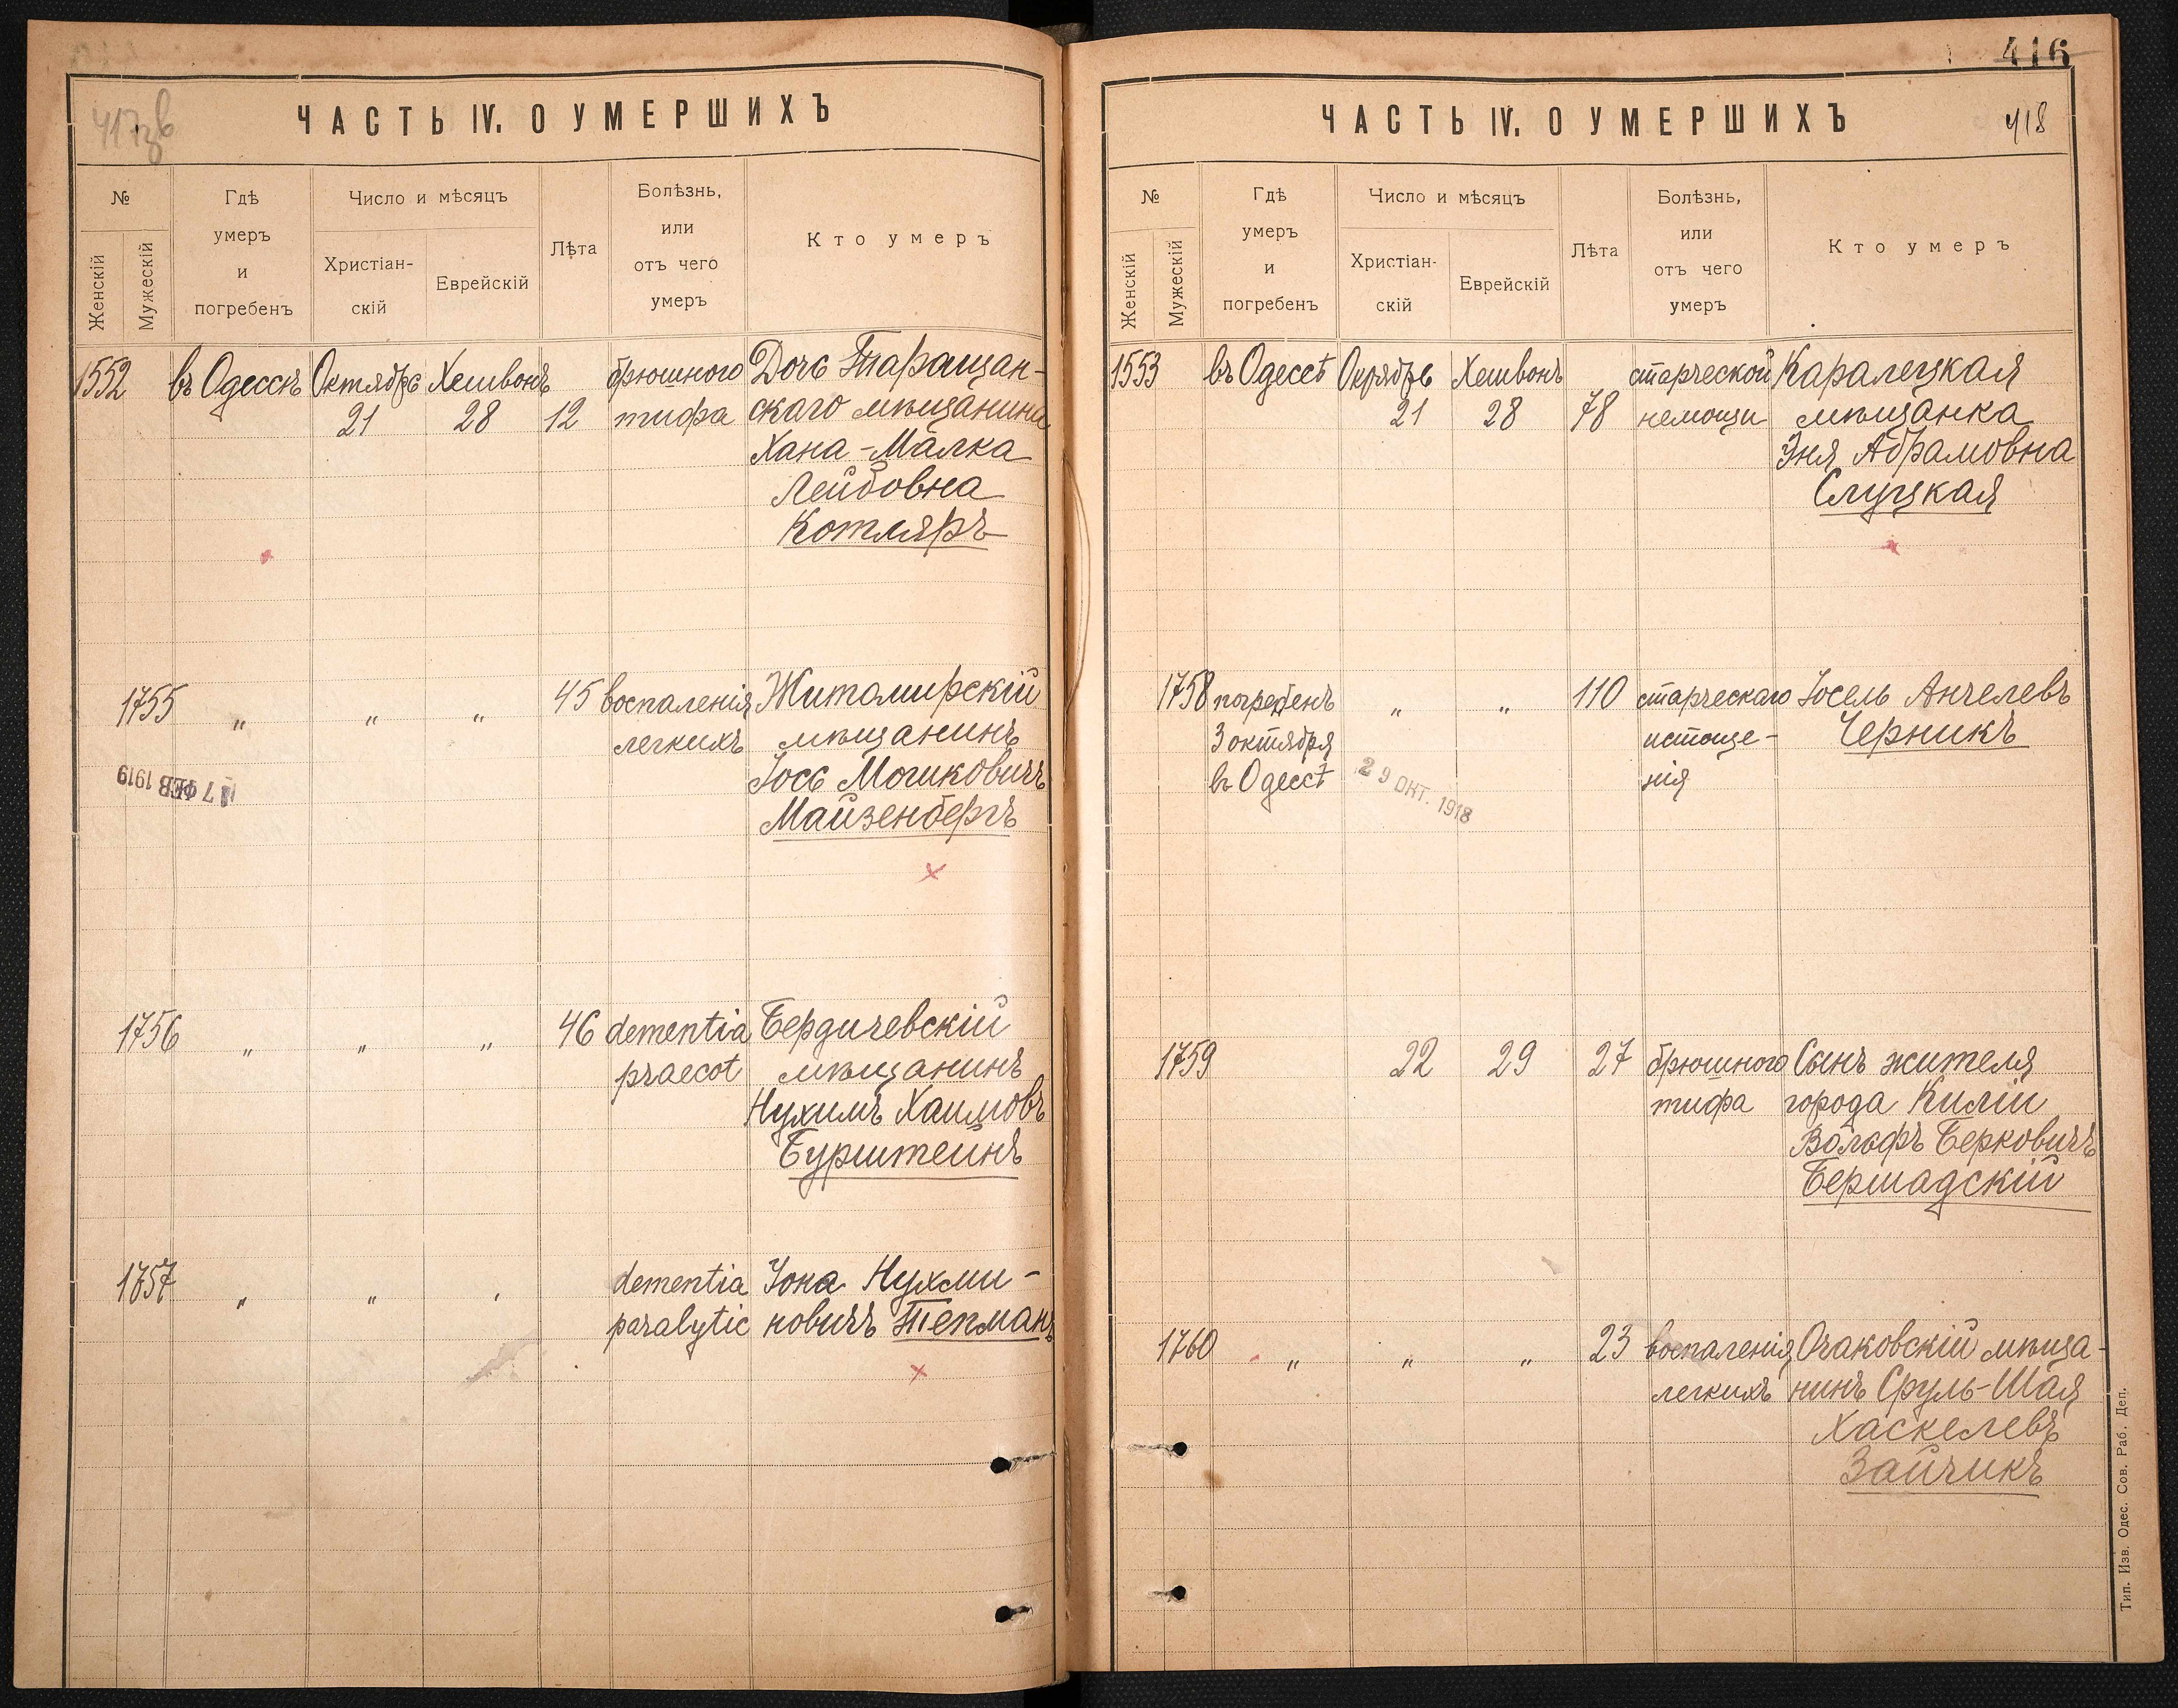 417зв
ЧАСТЬ IV. О УМЕРШИХЪ
№
Женскій
Мужескій
Гдѣ
умеръ
и
погребенъ
Число и мѣсяцъ
Христіан-
скій
Еврейскій
Лѣта
Болѣзнь,
или
отъ чего
умеръ
Кто умеръ
1552 въ Одессѣ Октябрь Хешвонъ брюшного Дочь Таращан-
21 28 12 тифа скаго мѣщанина
Хана-Малка
Лейбовна
Котляръ
1755 „ „ „ 45 воспаленія Житомирскій
легкихъ мѣщанинъ
Іось Мошковичъ
Майзенбергъ
17 ФЕВ 1919
1756 „ „ „ 46 dementia Бердичевскій
praecot мѣщанинъ
Нухимъ Хаимовъ
Бурштейнъ
1757 „ „ „ dementia Іона Нухми-
paralytic новичъ Тепманъ
416
418
ЧАСТЬ IV. О УМЕРШИХЪ
№
Женскій
Мужескій
Гдѣ
умеръ
и
погребенъ
Число и мѣсяцъ
Христіан-
скій
Еврейскій
Лѣта
Болѣзнь,
или
отъ чего
умеръ
Кто умеръ
1553 въ Одессѣ Окрябрь Хешвонъ старческой Каралецкая
21 28 78 немощи мѣщанка
Эня Абрамовна
Слуцкая
1758 погребенъ „ „ 110 старческаго Іосель Анчелевъ
3 октября истоще- Черникъ
въ Одессѣ нія
29 ОКТ. 1918
1759 22 29 27 брюшного Сынъ жителя
тифа города Киліи
Вольфъ Берковичъ
Бершадскій
1760 „ „ „ 23 воспаленія Очаковскій мѣща-
легкихъ нинъ Сруль-Шая
Хаскелевъ
Зайчикъ
Тип. Изв. Одес. Сов. Раб. Деп.